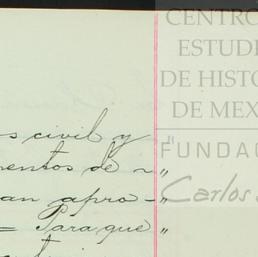 CENTRO
ESTUDI
DE HISTO
DE MEX
FUNDAC
Carlos
s civil y "
mentos de ~ "
an apro- "
= Para que "